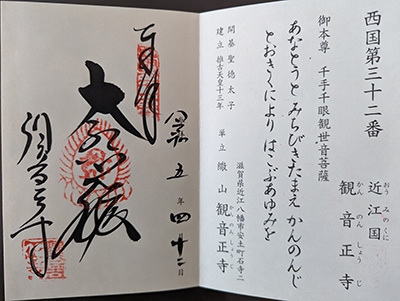 西国第三十二番
近江国
おうみのくに
観音正寺
かんのんしょうじ
御本尊 千手千眼観世音菩薩
あなとうと みちびきたまえ かんのんじ
とおきくにより はこぶあゆみを
開基 聖徳太子
建立 推古天皇十三年
滋賀県近江八幡市安土町石寺二
単立 繖山 観音正寺
かんのんしょうじ
奉拝
五年四月十二日
大悲殿
観音正寺